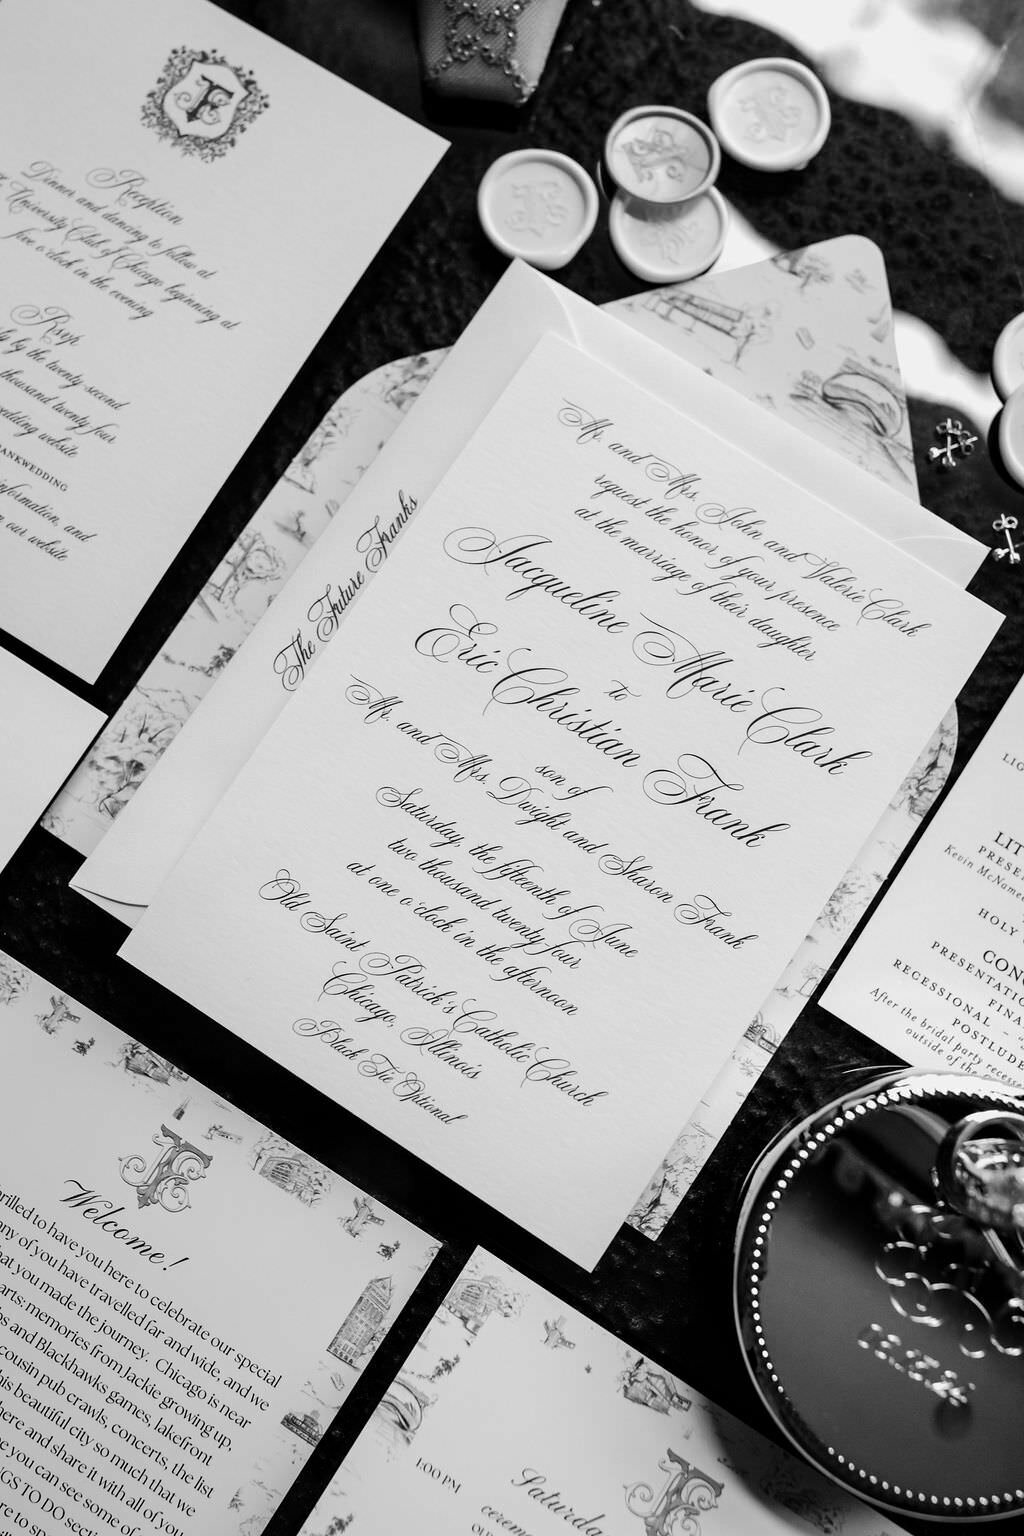 F
Reception
Dinner and dancing to follow at
University Club of Chicago beginning at
five o'clock in the evening
Rsvp
by the twenty-second
thousand twenty four
wedding website
information, and
on our website
The Future Franks
Mr. and Mrs. John and Valerie Clark
request the honor of your presence
at the marriage of their daughter
Jacqueline Marie Clark
to
Eric Christian Frank
son of
Mr. and Mrs. Dwight and Sharon Frank
Saturday, the fifteenth of June
two thousand twenty four
at one o'clock in the afternoon
Old Saint Patrick's Catholic Church
Chicago, Illinois
Black Tie Optional
PRESENTATIO
RECESSIONAL
POSTLUDE
After the bridal party recesse
outside of the
HOLY
Kevin McName
Welcome!
to have you here to celebrate our special
of you have travelled far and wide, and we
you made the journey. Chicago is near
memories from Jackie growing up,
and Blackhawks games, lakefront
cousin pub crawls, concerts, the list
this beautiful city so much that we
here and share it with all of you
you can see some of
TO DO
1:00 PM
Saturda
ceremo